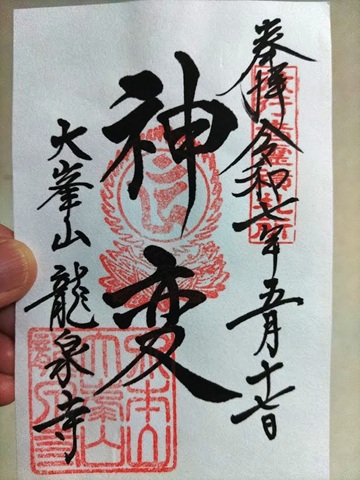 奉拝 令和七年五月十七日
神変
大峯山 龍泉寺